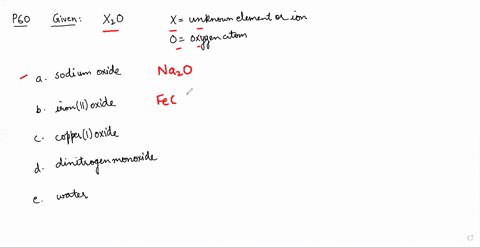 P60 Given: X₂O X = unknown element or ion
O = oxygen atom
a. sodium oxide Na₂O
b. iron(II) oxide FeC
c. copper(I) oxide
d. dinitrogen monoxide
e. water